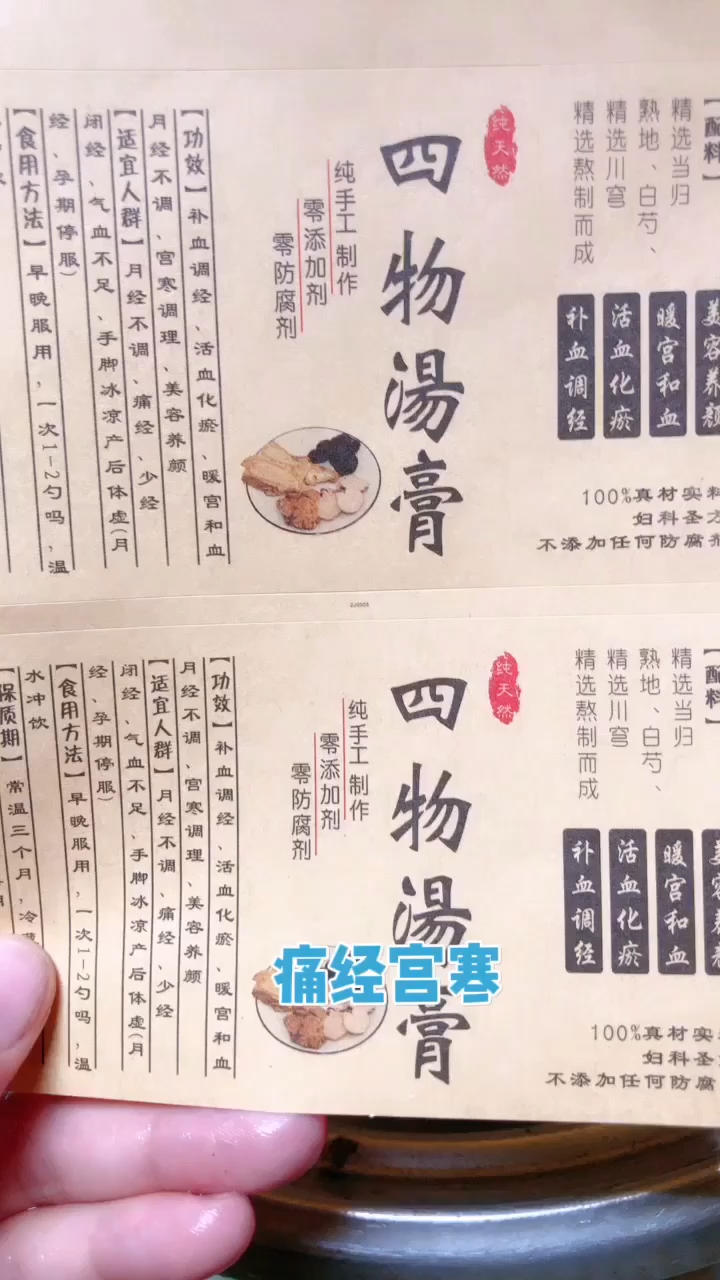 【配料】
精选当归
熟地、白芍、
精选川穹
精选熬制而成
美容养颜
暖宫和血
活血化瘀
补血调经
100%真材实料
妇科圣方
不添加任何防腐剂
纯天然
四物湯膏
纯手工制作
零添加剂
零防腐剂
【功效】补血调经、活血化瘀、暖宫和血
月经不调、宫寒调理、美容养颜
【适宜人群】月经不调、痛经、少经
闭经、气血不足、手脚冰凉产后体虚(月
经、孕期停服)
【食用方法】早晚服用，一次1-2勺吗，温
【配料】
精选当归
熟地、白芍、
精选川穹
精选熬制而成
暖宫和血
活血化瘀
补血调经
100%真材实
妇科圣
不添加任何防腐
纯天然
四物湯膏
纯手工制作
零添加剂
零防腐剂
【功效】补血调经、活血化瘀、暖宫和血
月经不调、宫寒调理、美容养颜
【适宜人群】月经不调、痛经、少经
闭经、气血不足、手脚冰凉产后体虚(月
经、孕期停服)
【食用方法】早晚服用，一次1-2勺吗，温
水冲饮
【保质期】常温三个月，冷藏
痛经宫寒